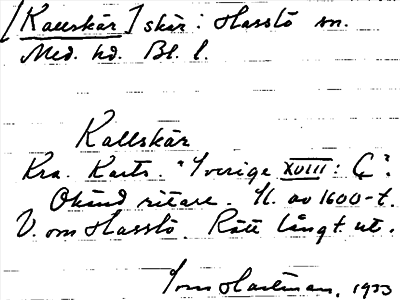 [Kallskär] skär: Hasslö sn.
Med. hd. Bl. l.
Kallskär
Kra. Karts. "Sverige XVIII: Ç".
Okänd ritare. Sl. av 1600-t.
V. om Hasslö. Rätt långt ut.
Hartman, 1933